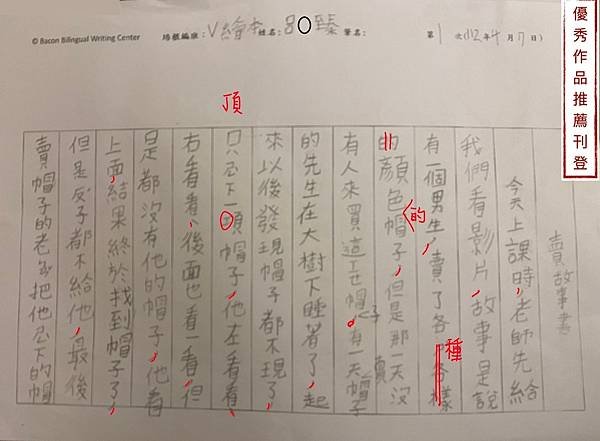 優秀作品推薦刊登
© Bacon Bilingual Writing Center 培根編班:V繪本 姓名:呂○臻 筆名: 第1次(112年4月17日)
賣故事書
今天上課時,老師先給
我們看影片,故事是說
有一個男生,賣了各種各樣
的顏色的帽子,但是那一天沒
有人來買這些帽子。有一天賣帽子
的先生在大樹下睡著了,起
來以後發現帽子都不現了,
頂
只忍下一頭帽子,他左看看、
右看看、後面也看一看,但
是都沒有他的帽子,他看
上面,結果終於找到帽子了,
但是反子都不給他,最後
賣帽子的老把他忍下的帽